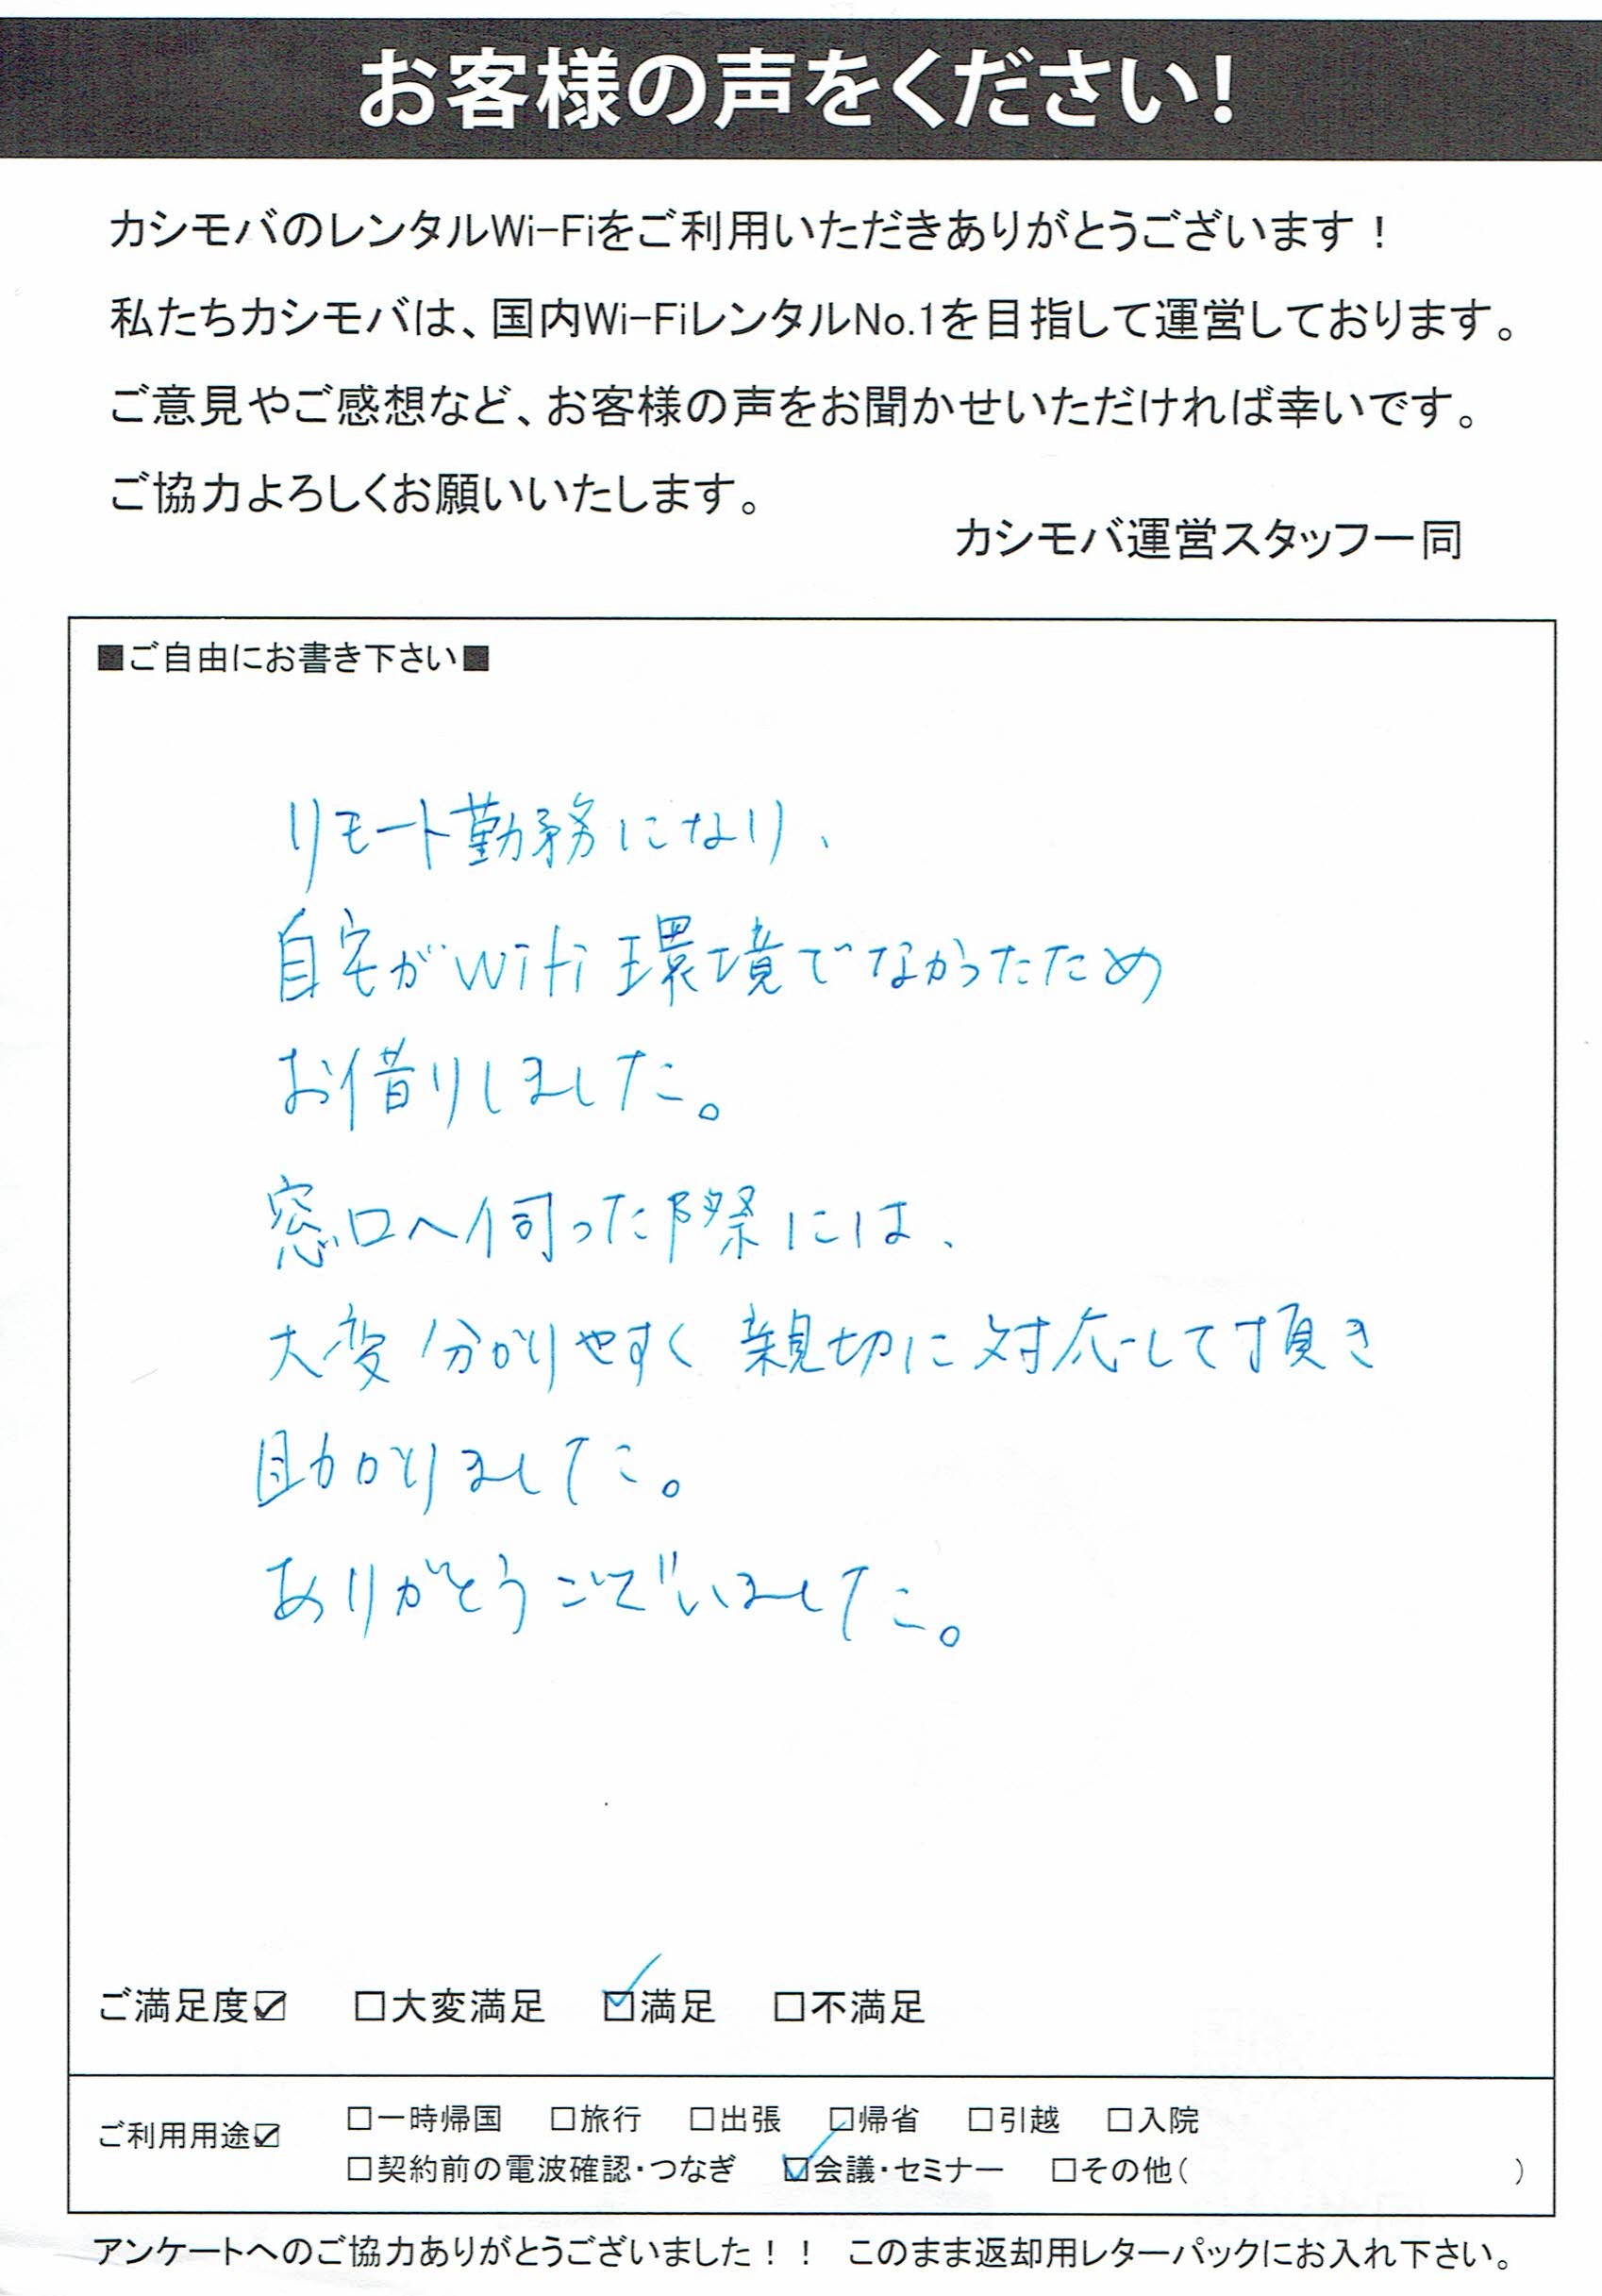 お客様の声をください!
カシモバのレンタルWi-Fiをご利用いただきありがとうございます！
私たちカシモバは、国内Wi-FiレンタルNo.1を目指して運営しております。
ご意見やご感想など、お客様の声をお聞かせいただければ幸いです。
ご協力よろしくお願いいたします。
カシモバ運営スタッフ一同
■ご自由にお書き下さい■
リモート勤務になり、
自宅がWifi環境でなかったため
お借りしました。
窓口へ伺った際には、
大変分かりやすく親切に対応して頂き
助かりました。
ありがとうございました。
ご満足度☑ □大変満足 ☑満足 □不満足
ご利用用途☑ □一時帰国 □旅行 □出張 □帰省 □引越 □入院
□契約前の電波確認・つなぎ ☑会議・セミナー □その他( )
アンケートへのご協力ありがとうございました！！ このまま返却用レターパックにお入れ下さい。